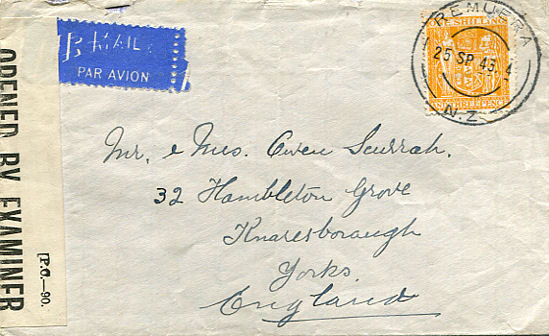 OPENED BY EXAMINER
[P.C.—90.
AIR MAIL
PAR AVION
REMUERA
25 SP 43
N.Z.
ONE SHILLING
AND THREEPENCE
Mr. & Mrs. Owen Scurrah.
32 Hambleton Grove
Knaresborough
Yorks.
England